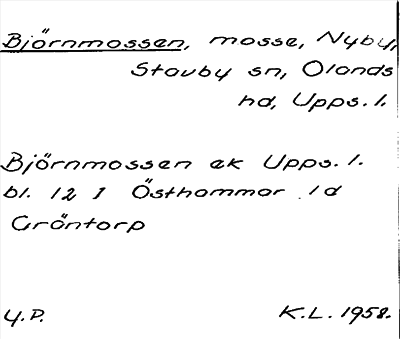 Björnmossen, mosse, Nyby,
Stavby sn, Olands
hd, Upps. l.
Björnmossen ek Upps. l.
bl. 12 I Östhammar 1d
Gröntorp
Y.P.
K.L. 1958.